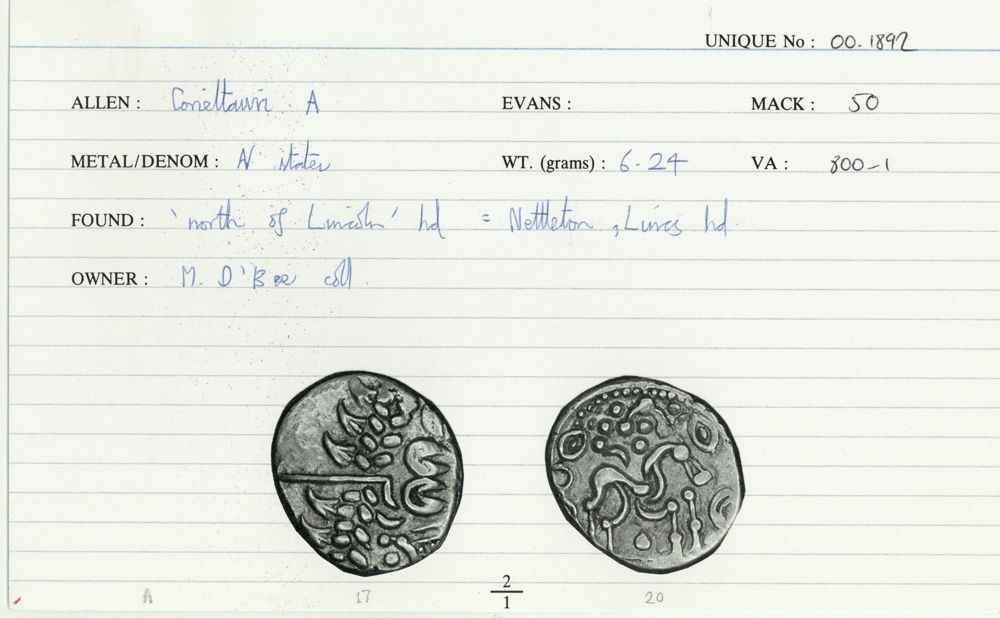 UNIQUE No : 00.1892
ALLEN : Corieltauvi A EVANS : MACK : 50
METAL/DENOM : N stater WT. (grams) : 6.24 VA : 800-1
FOUND : 'north of Lincoln' hd = Nettleton, Lincs hd.
OWNER : M. D'Bee coll.
A 17 2/1 20